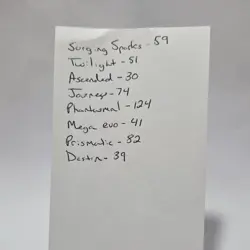 Surging Sparks - 59
Twilight - 51
Ascended - 30
Journeys - 74
Phantasmal - 124
Mega evo - 41
Prismatic - 82
Destin - 39